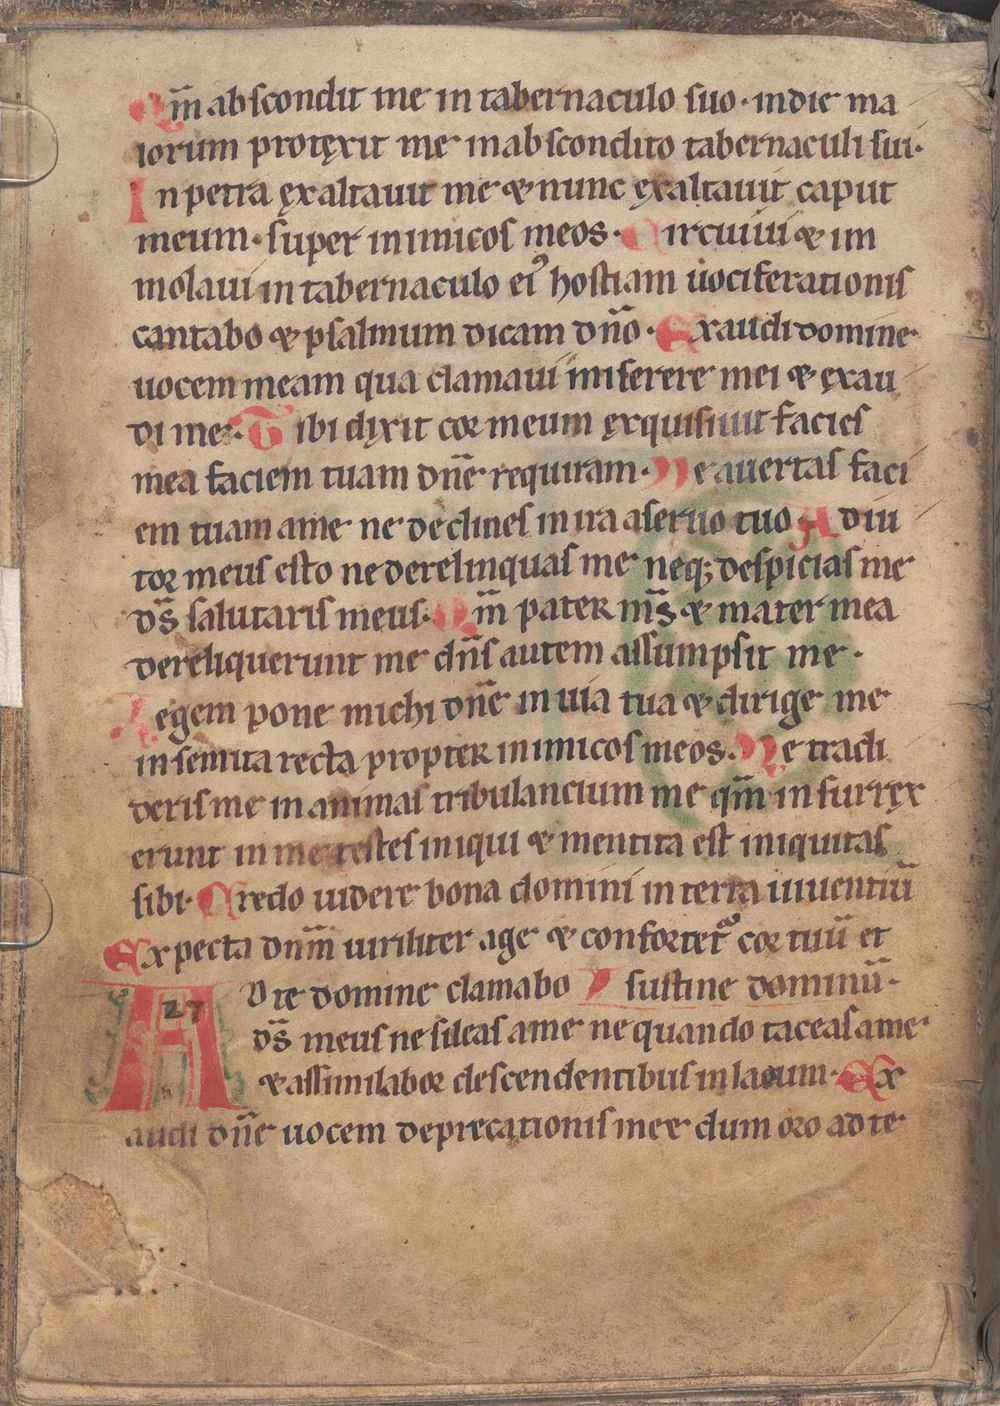 Qm̄ abscondit me in tabernaculo suo · indie ma
iorum protęxit me inabscondito tabernaculi sui·
In petra ęxaltauit me & nunc ęxaltauit caput
meum · super inimicos meos · Circuiui & im
molaui in tabernaculo ei᾽ hostiam uociferationis
cantabo & psalmum dicam dn̄o · Exaudi domine
uocem meam qua clamaui miserere mei & ęxau
di me· Tibi dixit cor meum ęxquisiuit facies
mea faciem tuam dn̄e requiram · Ne auertas faci
em tuam ame ne declines in ira aseruo tuo · Adiu
tor meus esto ne derelinquas me neq; despicias me
ds̄ salutaris meus · Qm̄ pater ms̄ & mater mea
dereliquerunt me dn̄s autem assumpsit me ·
Legem pone michi dn̄e in uia tua & dirige me
in semita recta propter inimicos meos · Ne tradi
deris me in animas tribulancium me qm̄ insurręx
erunt in me testes iniqui & mentita est iniquitas
sibi · Credo uidere bona domini in terra uiuentiū
Expecta dnm̄ uiriliter age & confortet᾽ cor tuū et
A 27 D te domine clamabo sustine dominū·
ds̄ meus ne sileas ame ne quando taceas ame·
& assimilabor descendentibus in lacum · Ex
audi dn̄e uocem deprecationis mee dum oro ad te